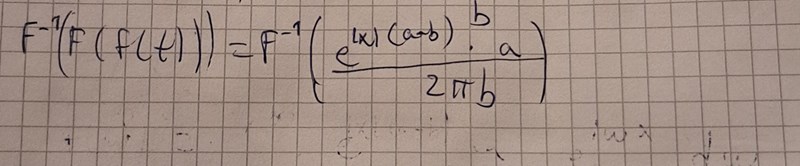 F⁻¹(F(f(t))) = F⁻¹( (e^{|x|(a-b)} · b a) / (2πb) )